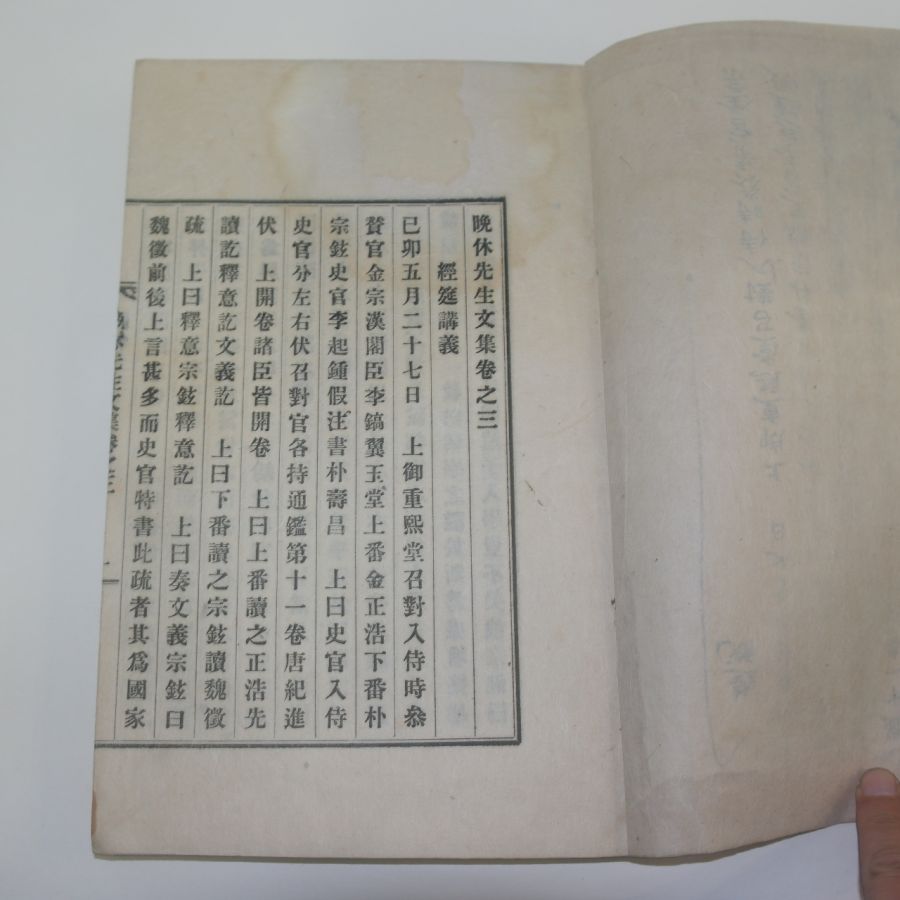 晩休先生文集卷之三
經筵講義
己卯五月二十七日 上御重熙堂召對入侍時叅
賛官金宗漢閣臣李鎬翼玉堂上番金正浩下番朴
宗鉉史官李起鍾假注書朴壽昌 上曰史官入侍
史官分左右伏召對官各持通鑑第十一卷唐紀進
伏 上開卷諸臣皆開卷 上曰上番讀之正浩先
讀訖釋意訖文義訖 上曰下番讀之宗鉉讀魏徵
疏 上曰釋意宗鉉釋意訖 上曰奏文義宗鉉曰
魏徵前後上言甚多而史官特書此疏者其爲國家